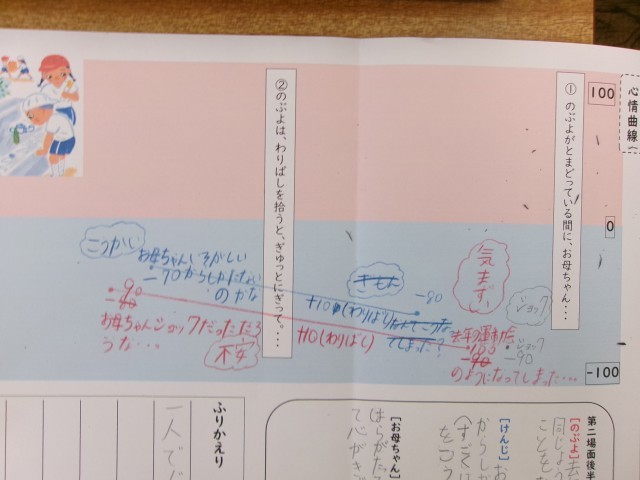 心情曲線
100
0
-100
① のぶよがとまどっている間に、お母ちゃん・・・
② のぶよは、わりばしを拾うと、ぎゅっとにぎって。・・・
気まずい
ショック
-80
去年の運動会
-100
-90
ショック
-90
のようになってしまった・・・
+10(わりばし)
てしまった?
+10(わりばし)
こうかい
お母ちゃんいそがしい
-70からしかたない
のかな
-90
お母ちゃんショックだっただろ
うな・・・
不安
第二場面後半
[のぶよ]
同じよう
ことを
[けんじ]
[お母ちゃん]
はらがた
て心がき
ふりかえり